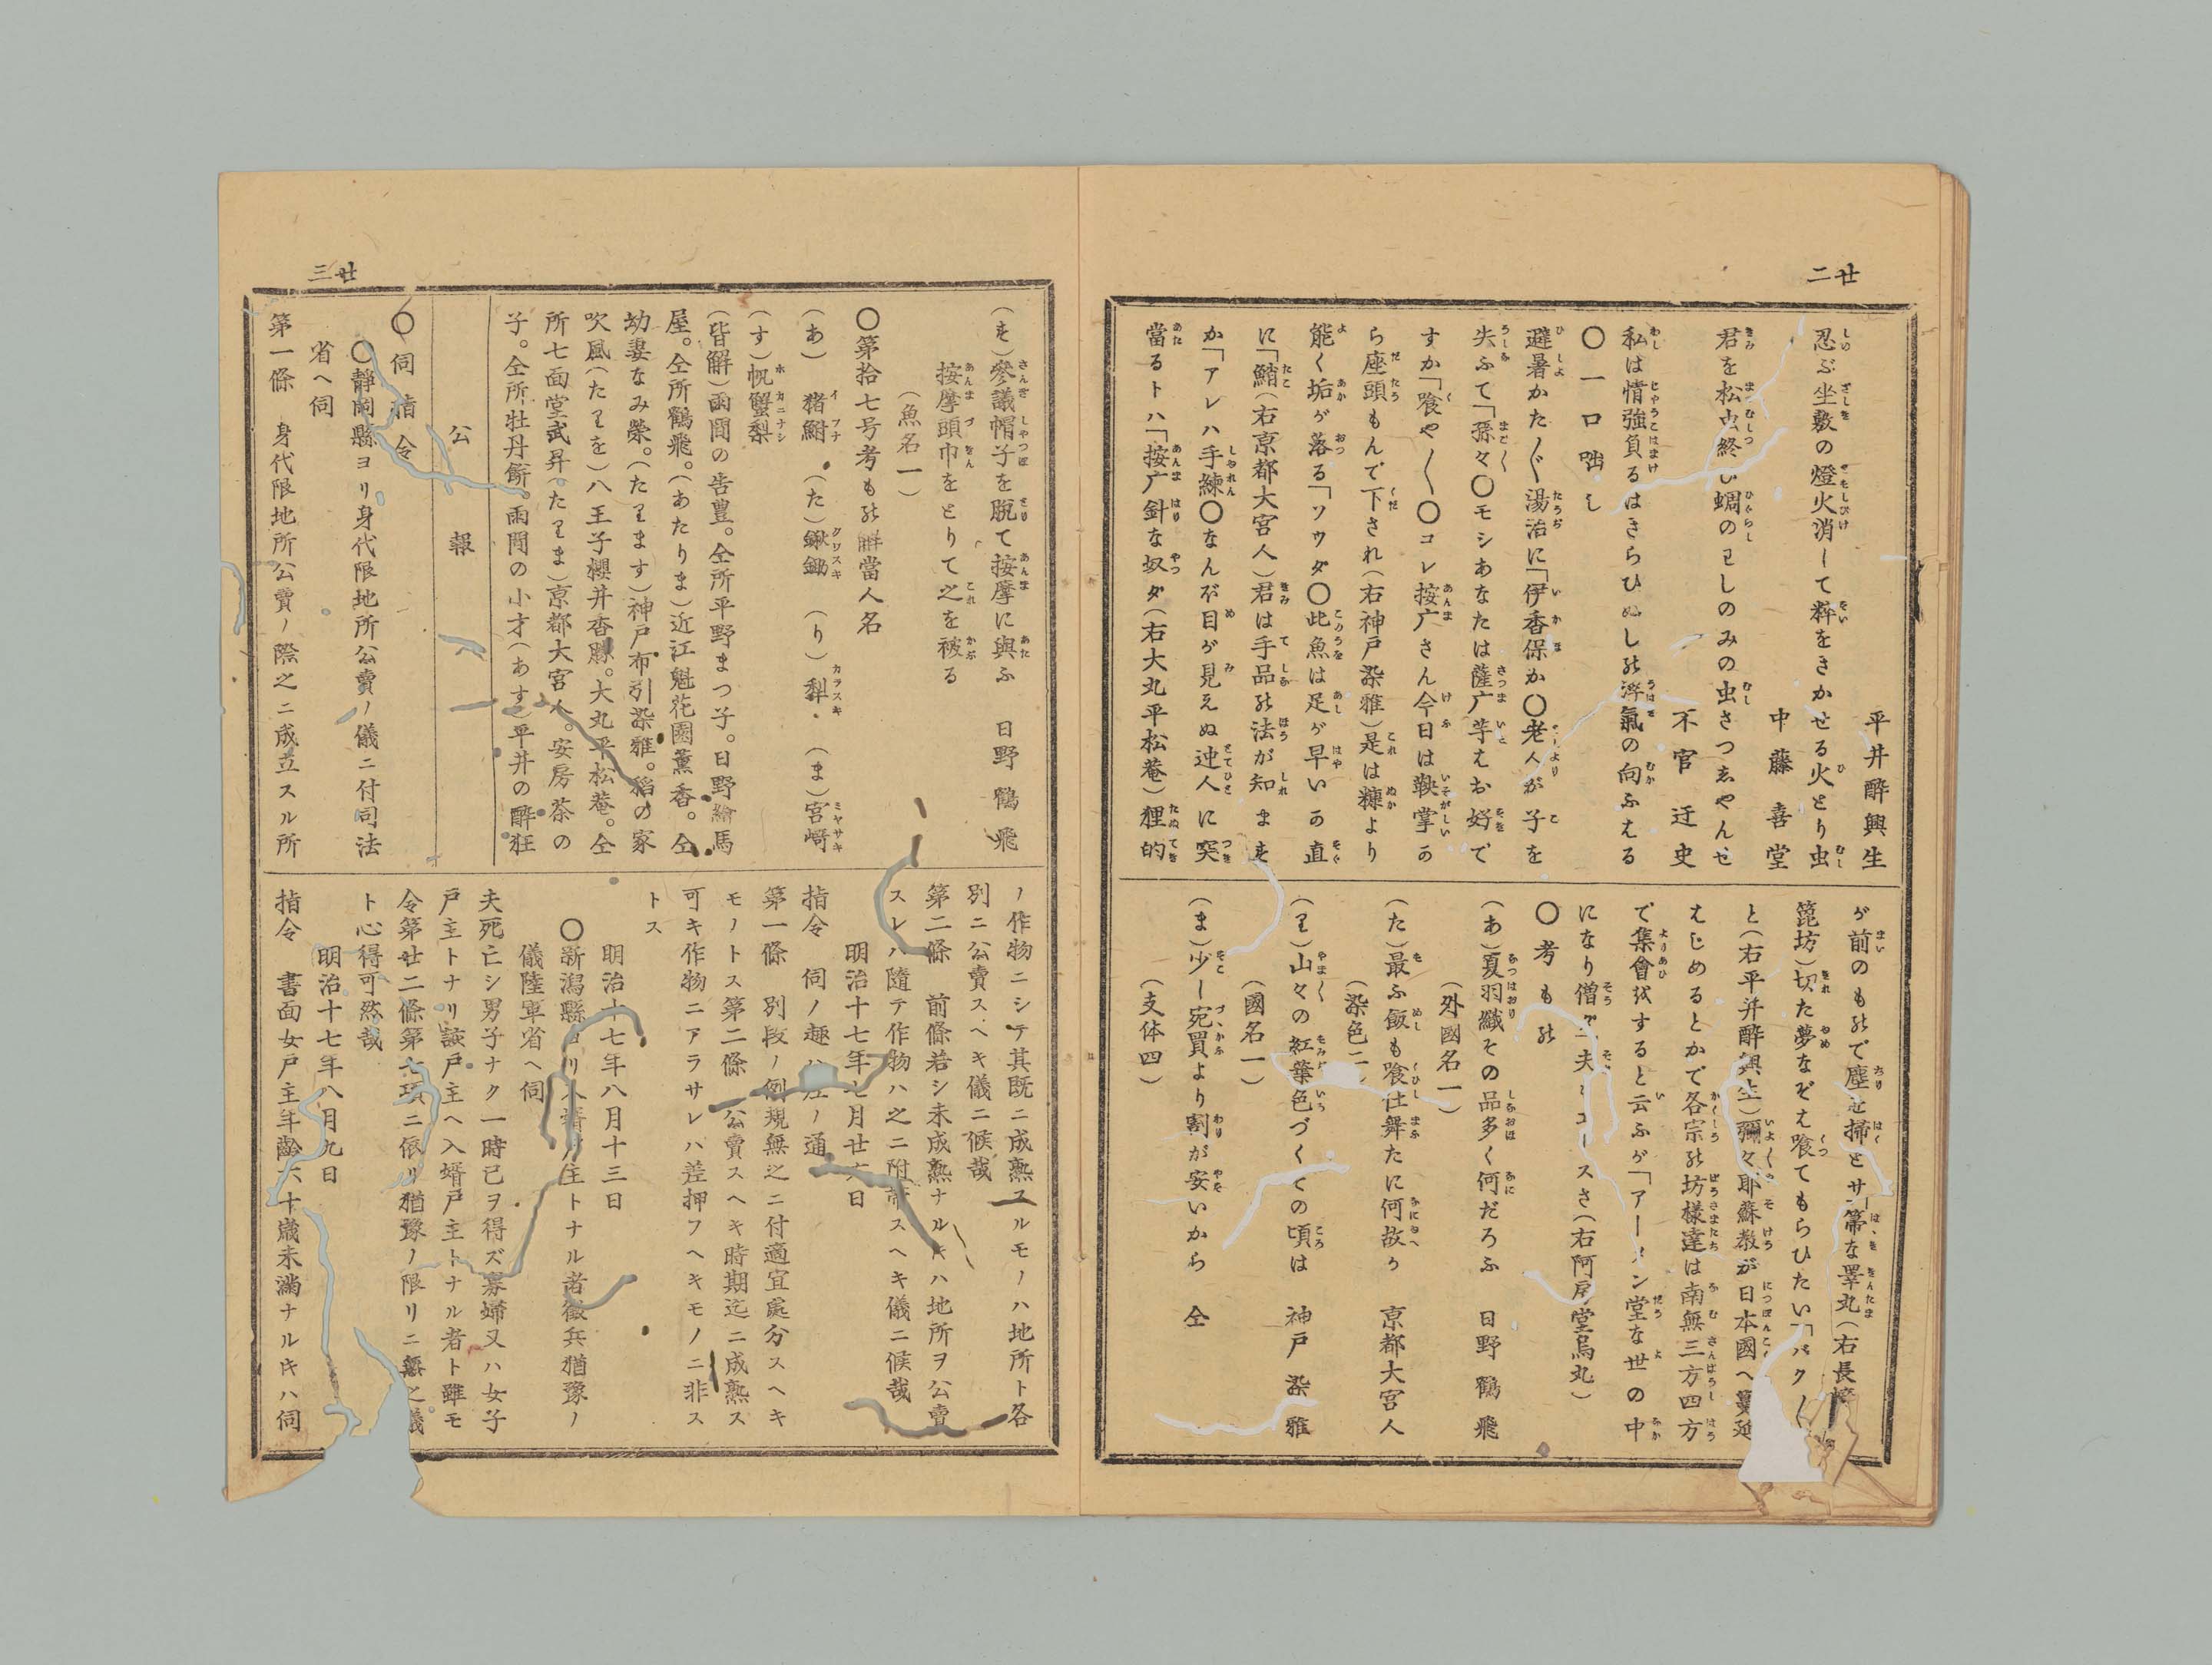 廿二
平井醉興生
忍ぶ坐敷の燈火消して粋をきかせる火とり虫
中藤喜堂
君を松虫終ひ蜩のこしのみの虫さつゑやんせ
不官迂史
私は情強負るはきらひぬしの浮氣の向ふえる
〇一口咄し
避暑かた〴〵湯治に「伊香保か〇老人が子を
失ふて「孫々〇モシあなたは薩广芋えお好で
すか「喰や〳〵〇コレ按广さん今日は鞅掌の
ら座頭もんで下され(右神戸染雅)是は糠より
能く垢が落る「ソウダ〇此魚は足が早いの直
に「鮹(右京都大宮人)君は手品の法が知ま
か「アレハ手練〇なんぼ目が見えぬ迚人に突
當るトハ「按广針な奴ダ(右大丸平松菴)狸的
が前のもので塵を掃とサー箒な睾丸(右長
箆坊)切た夢なぞえ喰てもらひたい「バク〳〵
と(右平井醉興生)彌々耶蘇教が日本國へ蔓延
えじめるとかで各宗の坊様達は南無三方四方
で集會をすると云ふが「アーメン堂な世の中
になり僧 夫 コースさ(右阿房堂烏丸)
〇考もの
(あ)夏羽織その品多く何だろふ 日野鶴飛
(外國名一)
(た)最ふ飯も喰仕舞たに何故か 京都大宮人
(染色二)
(り)山々の紅葉色づくての頃は 神戸染雅
(國名一)
(ま)少し宛買より割が安いから 仝
(支体四)
廿三
(す)參議帽子を脱て按摩に與ふ 日野鶴飛
按摩頭巾をとりて之を被る
(魚名一)
〇第拾七号考もの解當人名
(あ)猪鮒 (た)鍬鋤 (り)犁 (ま)宮﨑
(す)帆蟹梨
(皆解)函間の告豊。仝所平野まつ子。日野繪馬
屋。仝所鶴飛。(あたりま)近江魁花園薫香。仝
幼妻なみ榮。(たります)神戸布引染雅。稲の家
吹風(たりを)八王子櫻井杏 。大丸平松菴。仝
所七面堂武昇。(たりま)京都大宮人。安房茶の
子。仝所牡丹餅。函間の小才(あす)平井の醉狂
公報
〇伺指令
〇靜岡縣ヨリ身代限地所公賣ノ儀ニ付司法
省ヘ伺
第一條 身代限地所公賣ノ際之ニ成立スル所
ノ作物ニシテ其既ニ成熟スルモノハ地所ト各
別ニ公賣スヘキ儀ニ候哉
第二條 前條若シ未成熟ナルキハ地所ヲ公賣
スレハ隨テ作物ハ之ニ附帶スヘキ儀ニ候哉
明治十七年七月廿六日
指令 伺ノ趣ハ左ノ通
第一條 別段ノ例規無之ニ付適宜處分スヘキ
モノトス第二條 公賣スヘキ時期迄ニ成熟ス
可キ作物ニアラサレハ差押フヘキモノニ非ス
トス
明治十七年八月十三日
〇新潟縣ヨリ入壻戸主トナル者徴兵猶豫ノ
儀陸軍省ヘ伺
夫死亡シ男子ナク一時已ヲ得ズ寡婦又ハ女子
戸主トナリ該戸主ヘ入壻戸主トナル者ト雖モ
令第廿二條第七項ニ依リ猶豫ノ限リニ無之儀
ト心得可然哉
明治十七年八月九日
指令 書面女戸主年齡六十歳未滿ナルキハ伺